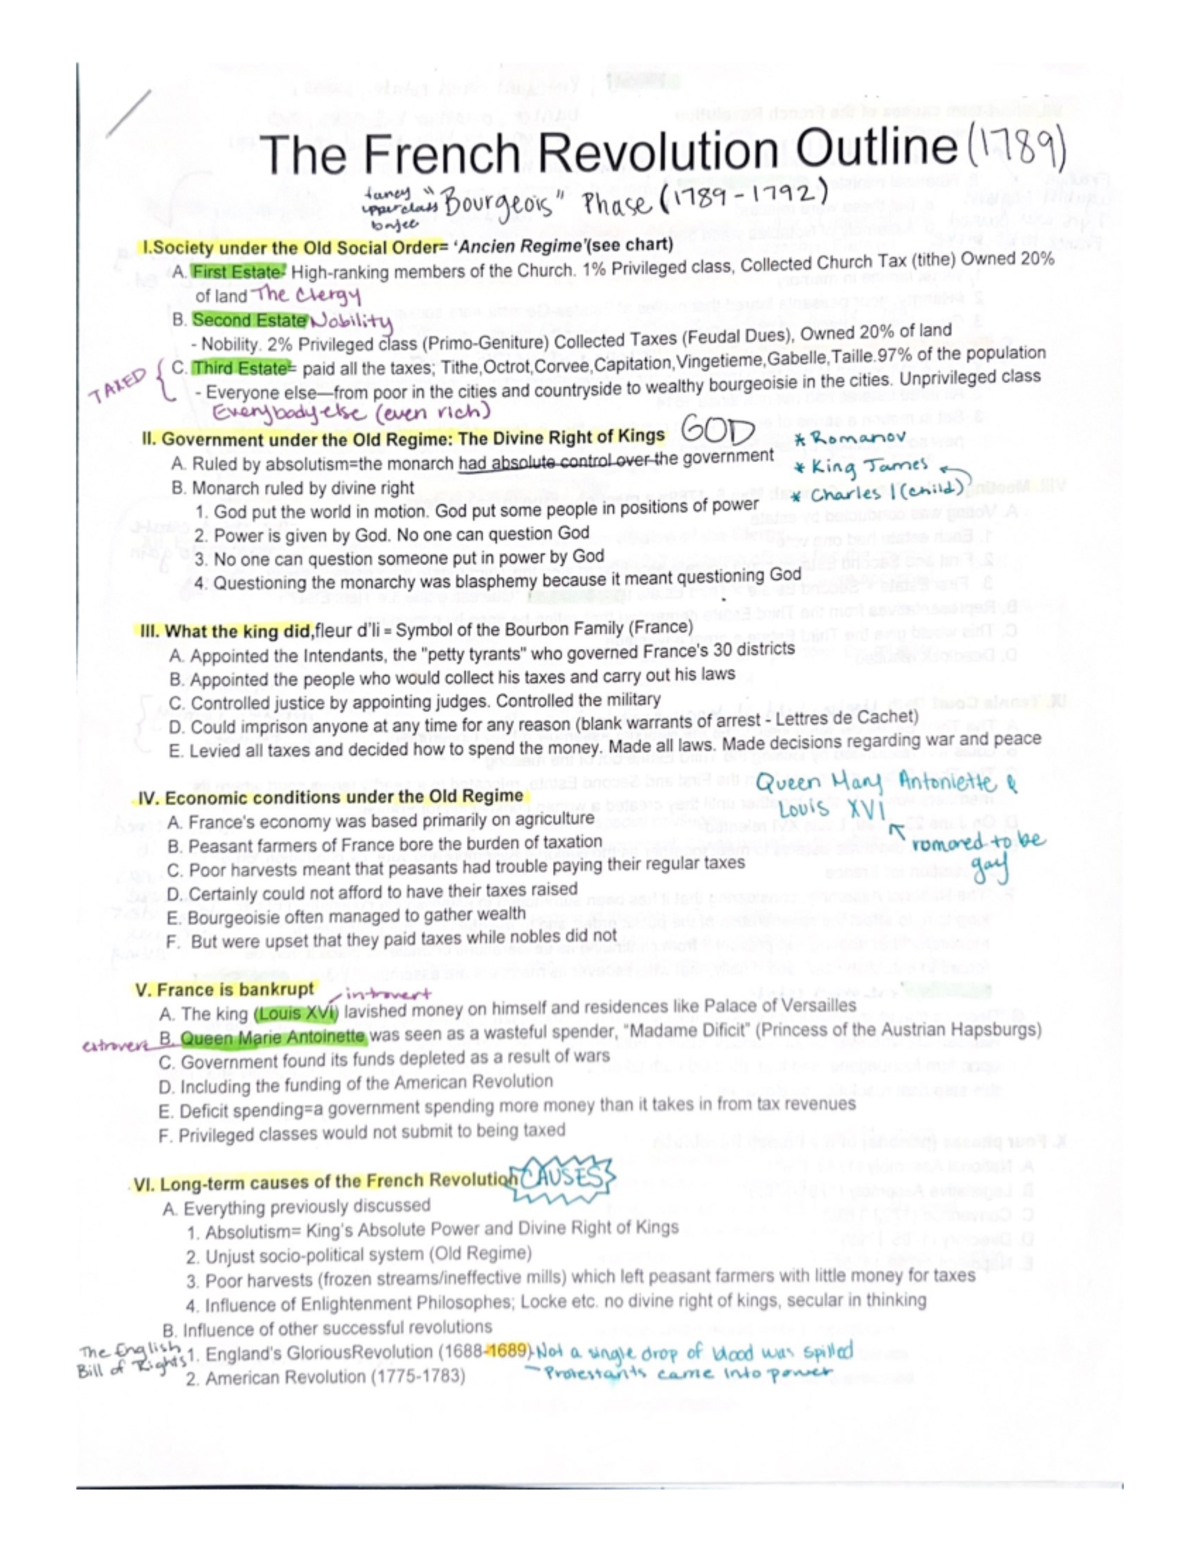 The French Revolution Outline (1789)
fancy upperclass "Bourgeois" Phase (1789-1792)
I.Society under the Old Social Order= ‘Ancien Regime’(see chart)
A. First Estate- High-ranking members of the Church. 1% Privileged class, Collected Church Tax (tithe) Owned 20%
of land The Clergy
B. Second Estate Nobility
- Nobility. 2% Privileged class (Primo-Geniture) Collected Taxes (Feudal Dues), Owned 20% of land
TAXED { C. Third Estate= paid all the taxes; Tithe,Octrot,Corvee,Capitation,Vingetieme,Gabelle,Taille.97% of the population
- Everyone else—from poor in the cities and countryside to wealthy bourgeoisie in the cities. Unprivileged class
Everybody else (even rich)
II. Government under the Old Regime: The Divine Right of Kings GOD
* Romanov
A. Ruled by absolutism=the monarch had absolute control over the government
* King James
B. Monarch ruled by divine right
* Charles I (child)
1. God put the world in motion. God put some people in positions of power
2. Power is given by God. No one can question God
3. No one can question someone put in power by God
4. Questioning the monarchy was blasphemy because it meant questioning God
III. What the king did,fleur d’li = Symbol of the Bourbon Family (France)
A. Appointed the Intendants, the "petty tyrants" who governed France's 30 districts
B. Appointed the people who would collect his taxes and carry out his laws
C. Controlled justice by appointing judges. Controlled the military
D. Could imprison anyone at any time for any reason (blank warrants of arrest - Lettres de Cachet)
E. Levied all taxes and decided how to spend the money. Made all laws. Made decisions regarding war and peace
Queen Many Antoniette &
Louis XVI
romored to be
gay
IV. Economic conditions under the Old Regime
A. France's economy was based primarily on agriculture
B. Peasant farmers of France bore the burden of taxation
C. Poor harvests meant that peasants had trouble paying their regular taxes
D. Certainly could not afford to have their taxes raised
E. Bourgeoisie often managed to gather wealth
F. But were upset that they paid taxes while nobles did not
V. France is bankrupt
introvert
A. The king (Louis XVI) lavished money on himself and residences like Palace of Versailles
extrovert B. Queen Marie Antoinette was seen as a wasteful spender, “Madame Dificit” (Princess of the Austrian Hapsburgs)
C. Government found its funds depleted as a result of wars
D. Including the funding of the American Revolution
E. Deficit spending=a government spending more money than it takes in from tax revenues
F. Privileged classes would not submit to being taxed
VI. Long-term causes of the French Revolution CAUSES
A. Everything previously discussed
1. Absolutism= King’s Absolute Power and Divine Right of Kings
2. Unjust socio-political system (Old Regime)
3. Poor harvests (frozen streams/ineffective mills) which left peasant farmers with little money for taxes
4. Influence of Enlightenment Philosophes; Locke etc. no divine right of kings, secular in thinking
B. Influence of other successful revolutions
The English
Bill of Rights 1. England's GloriousRevolution (1688-1689) Not a single drop of blood was spilled
2. American Revolution (1775-1783) - Protestants came into power